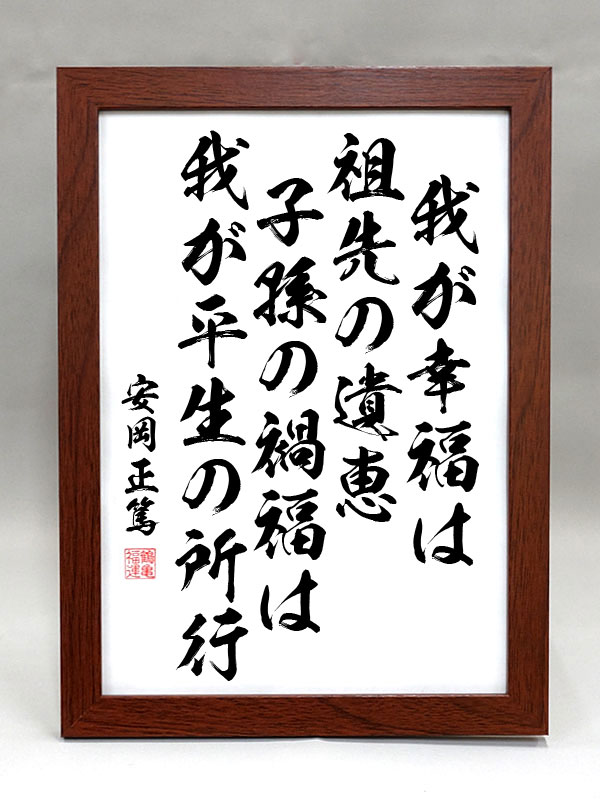 我が幸福は
祖先の遺恵
子孫の禍福は
我が平生の所行
安岡正篤
鶴亀
福運